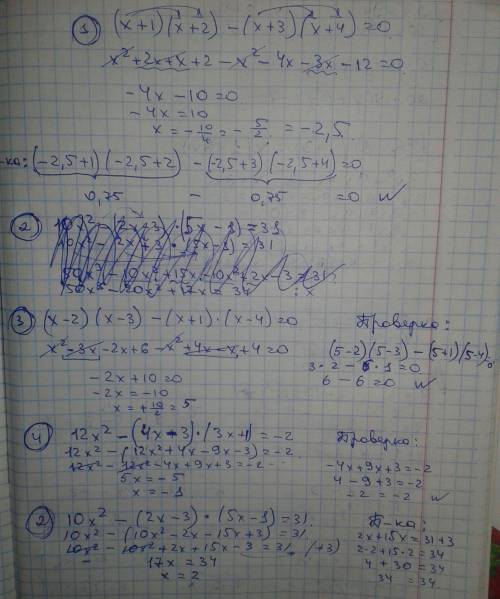 1) (x+1)(x+2) - (x+3)(x+4) = 0
x² + 2x + x + 2 - x² - 4x - 3x - 12 = 0
-4x - 10 = 0
-4x = 10
x = -10/4 = -5/2 = -2,5
-ка: (-2,5+1)(-2,5+2) - (-2,5+3)(-2,5+4) = 0
0,75 - 0,75 = 0
2)
3) (x-2)(x-3) - (x+1)·(x-4) = 0
x² - 3x - 2x + 6 - x² + 4x - x + 4 = 0
-2x + 10 = 0
-2x = -10
x = +10/2 = 5
Проверка:
(5-2)(5-3) - (5+1)(5-4)
3·2 - 6·1 = 0
6 - 6 = 0
4) 12x² - (4x-3)·(3x+1) = -2
12x² - (12x² + 4x - 9x - 3) = -2
12x² - 12x² - 4x + 9x + 3 = -2
5x = -5
x = -1
Проверка:
-4x + 9x + 3 = -2
4 - 9 + 3 = -2
-2 = -2
2) 10x² - (2x-3)·(5x-1) = 31
10x² - (10x² - 2x - 15x + 3) = 31
10x² - 10x² + 2x + 15x - 3 = 31 (+3)
17x = 34
x = 2
П-ка:
2x + 15x = 31 + 3
2·2 + 15·2 = 34
4 + 30 = 34
34 = 34